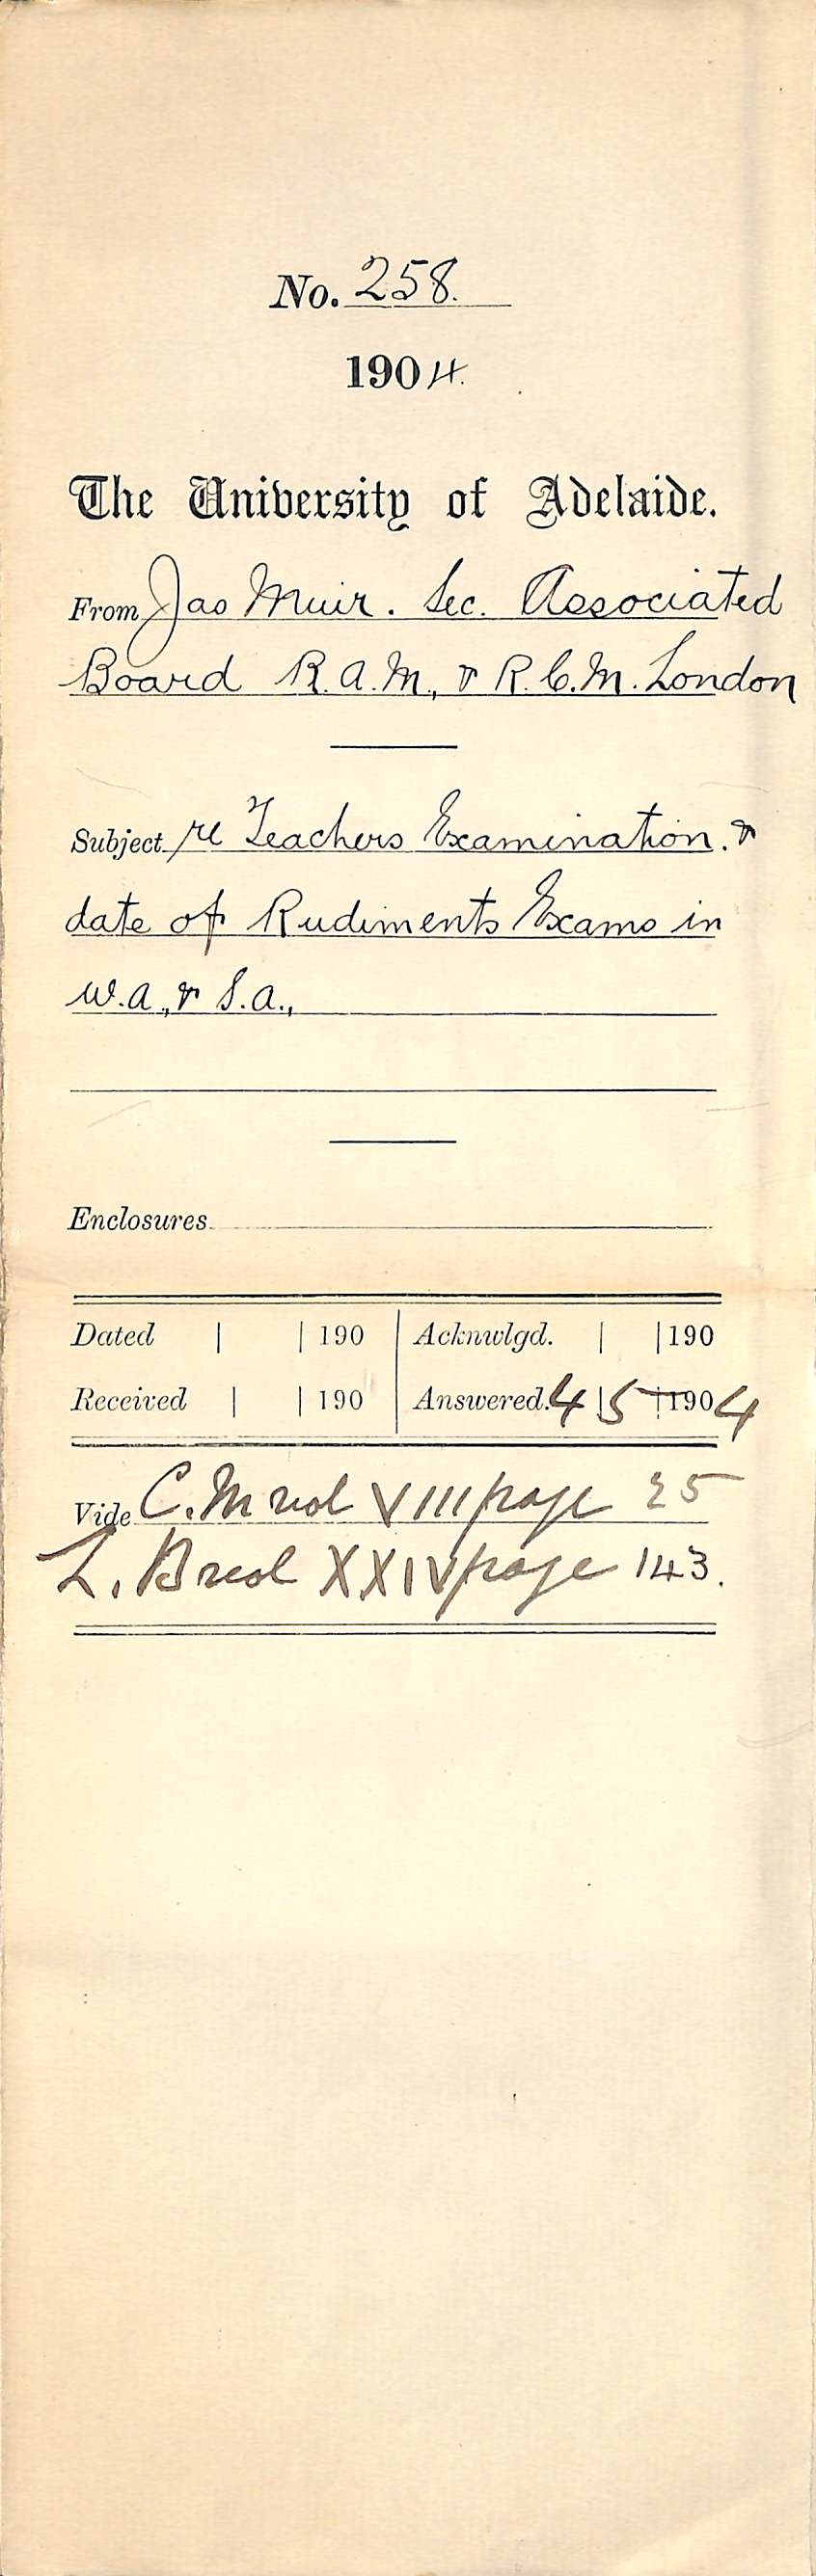 No. 258.
1904.
The University of Adelaide.
From Jas Muir. Sec. Associated
Board R.A.M., & R.C.M. London
Subject re Teachers Examination. &
date of Rudiments Exams in
W.A., & S.A.,
Enclosures
Dated | | 190 | Acknwlgd. | | 190
Received | | 190 | Answered. 4 | 5 | 1904
Vide C.M vol VIII page 25
L.B vol XXIV page 143.